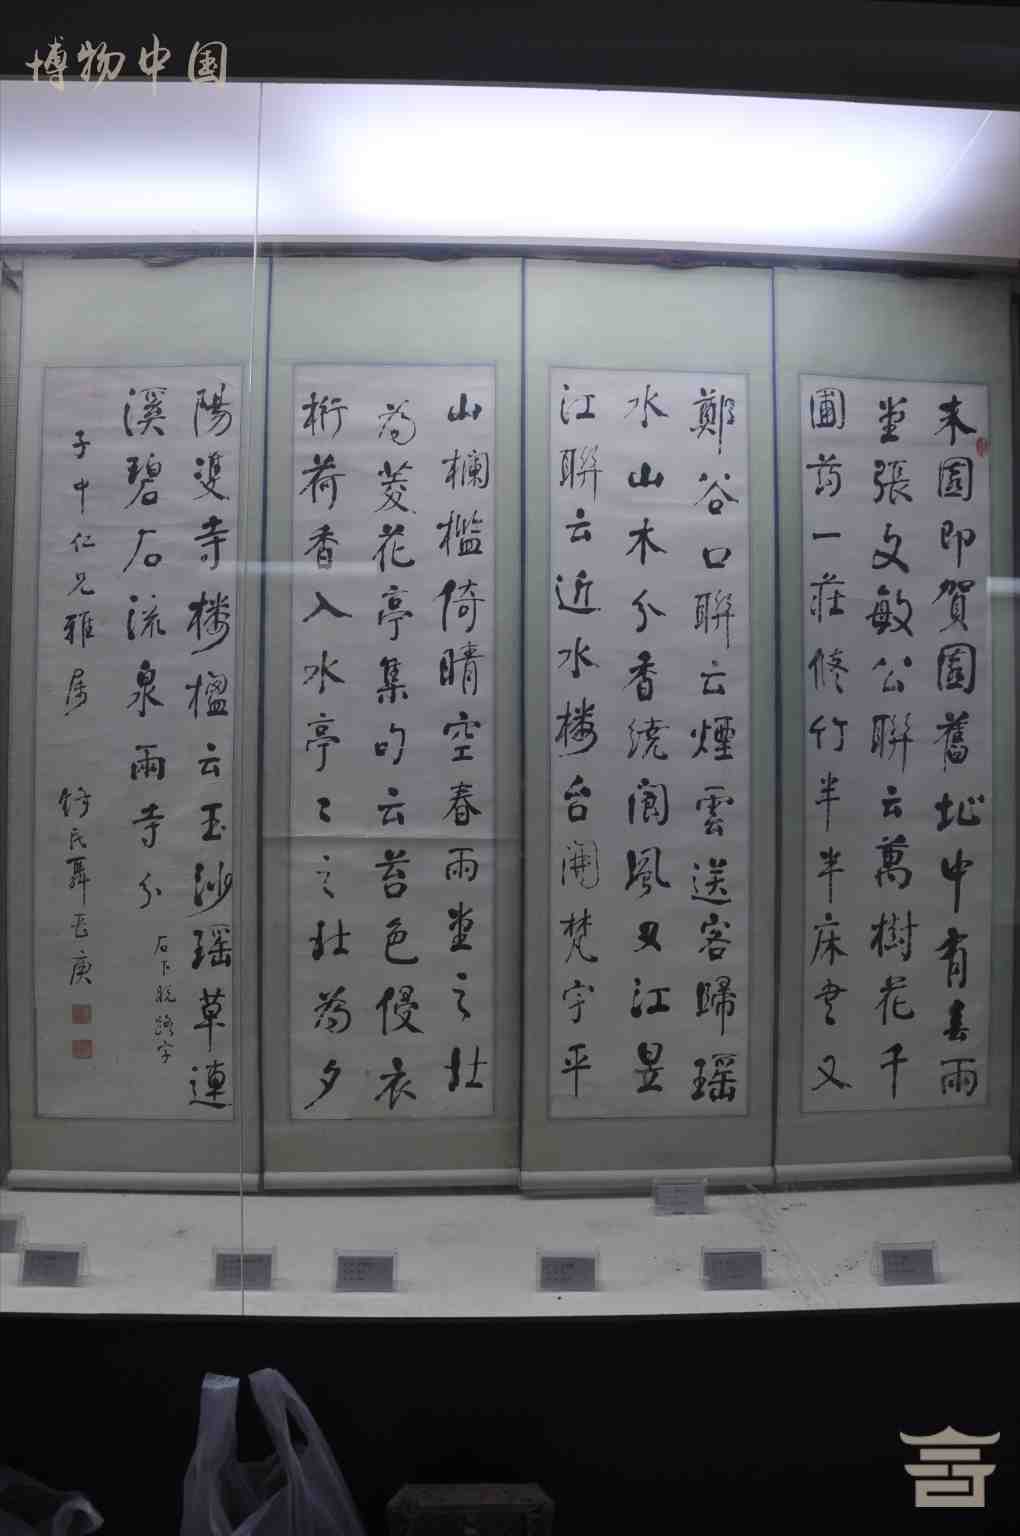 博物中国
東園即賀園舊址中有春雨
堂張文敏公聯云萬樹花千
圃药一莊修竹半半床書又
鄭谷口聯云煙雲送客歸瑶
水山木分香繞閬風又江昱
江聯云近水楼台開梵宇平
山欄檻倚晴空春雨堂之北
為菱花亭集句云苔色侵衣
桁荷香入水亭〻之北為夕
陽雙寺楼楹云玉沙瑶草連
溪碧石流泉雨寺分
石下脱路字
子中仁兄雅属